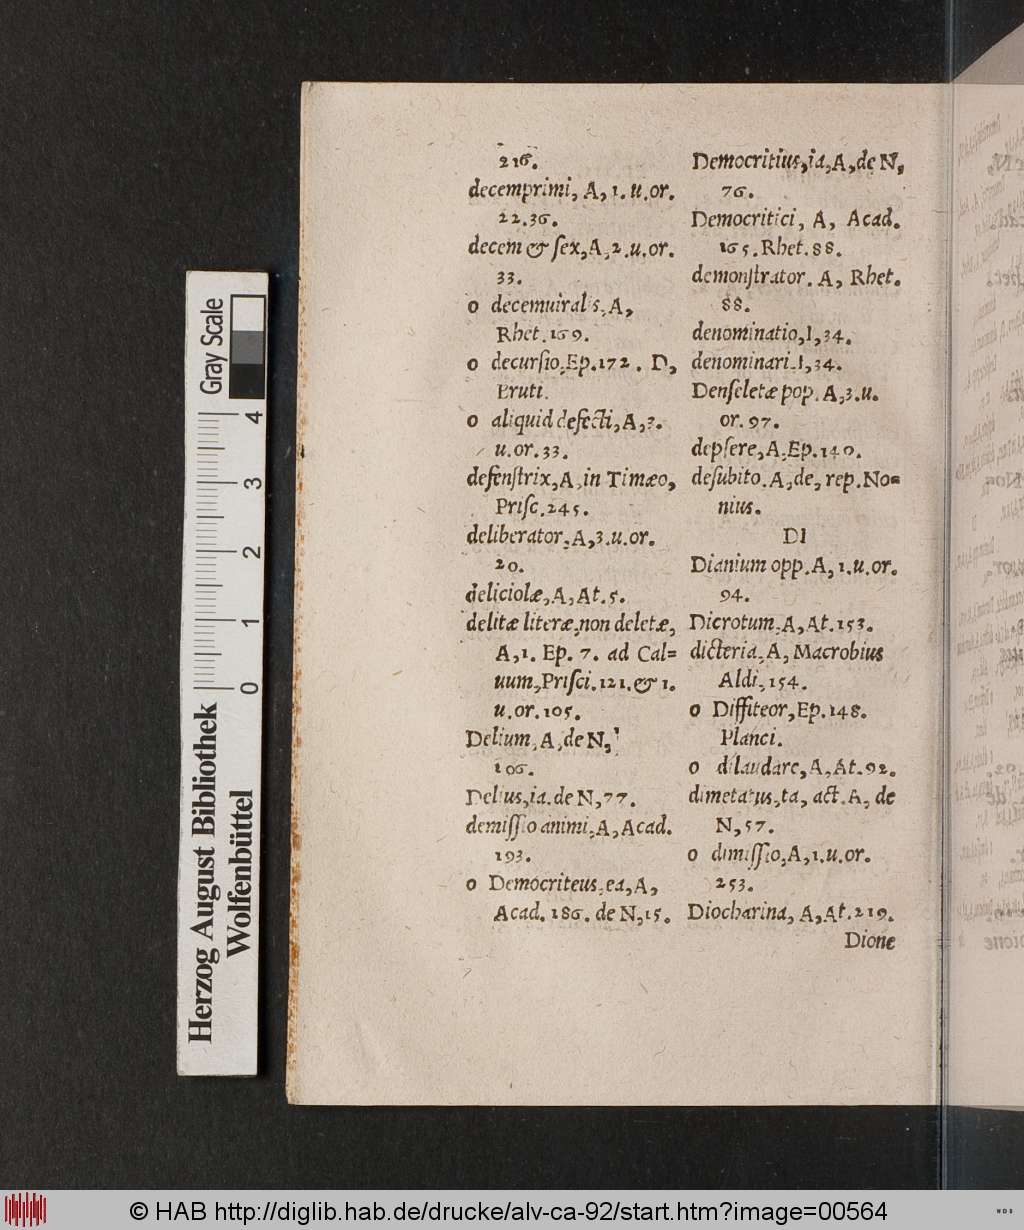 216.
decemprimi, A, 1. u. or.
22.36.
decem & ſex, A, 2. u. or.
33.
o decemuiralis, A,
Rhet. 169.
o decurſio, Ep. 172. D,
Bruti.
o aliquid defecti, A, 3.
u. or. 33.
defenſtrix, A, in Timæo,
Priſc. 245.
deliberator, A, 3. u. or.
20.
deliciolæ, A, At. 5.
delitæ literæ, non deletæ,
A, 1. Ep. 7. ad Cal=
uum, Priſci. 121. & 1.
u. or. 105.
Delium, A, de N,
106.
Delius, ia. de N, 77.
demiſſio animi, A, Acad.
193.
o Democriteus, ea, A,
Acad. 186. de N, 15.
Democritius, ia, A, de N,
76.
Democritici, A, Acad.
165. Rhet. 88.
demonſtrator. A, Rhet.
88.
denominatio, I, 34.
denominari. I, 34.
Denſeletæ pop. A, 3. u.
or. 97.
depſere, A, Ep. 140.
deſubito. A, de, rep. No=
nius.
DI
Dianium opp. A, 1. u. or.
94.
Dicrotum, A, At. 153.
dicteria, A, Macrobius
Aldi, 154.
o Diffiteor, Ep. 148.
Planci.
o dilaudare, A, At. 92.
dimetatus, ta, act. A, de
N, 57.
o dimiſſio, A, 1. u. or.
253.
Diocharina, A, At. 219.
Dione
Gray Scale
4
3
2
1
0
Herzog August Bibliothek
Wolfenbüttel
© HAB http://diglib.hab.de/drucke/alv-ca-92/start.htm?image=00564